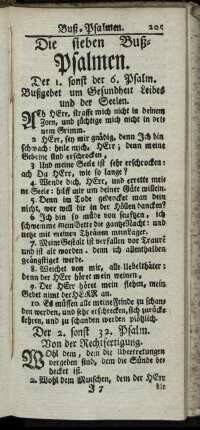 Buß-Psalmen. 205
Die sieben Buß-
Psalmen.
Der 1. sonst der 6. Psalm.
Bußgebet um Gesundheit Leibes
und der Seelen.
Ach HErr, straffe mich nicht in deinem
Zorn, und züchtige mich nicht in dei-
nem Grimm.
2. HErr, sey mir gnädig, denn Ich bin
schwach: heile mich, HErr; denn meine
Gebeine sind erschrocken,
3 Und meine Seele ist sehr erschrocken:
ach Du HErr, wie so lange?
4. Wende dich, HErr, und errette mei-
ne Seele: hilff mir um deiner Güte willen.
5. Denn im Tode gedencket man dein
nicht, wer will dir in der Höllen dancken?
6 Ich bin so müde von seufzen, ich
schwemme mein Bette die gantze Nacht und
netze mit meinen Thränen mein Lager.
7. Meine Gestalt ist verfallen vor Traure
und ist alt worden. denn ich allenthalben
geängstiget werde.
8. Weichet von mir, alle Uebelthäter:
denn der HErr höret mein weinen,
9. Der HErr höret mein flehen, mein
Gebet nimt der HERR an.
10. Es müssen alle meine Feinde zu schan-
den werden, und sehr erschrecken, sich zurücke
kehren, und zu schanden werden plötzlich.
Der 2. sonst 32. Psalm.
Von der Rechtfertigung.
Wohl dem, dem die übertretungen
vergeben sind, dem die Sünde be-
decket ist.
2. Wohl dem Menschen, dem der HErr
J 7 die